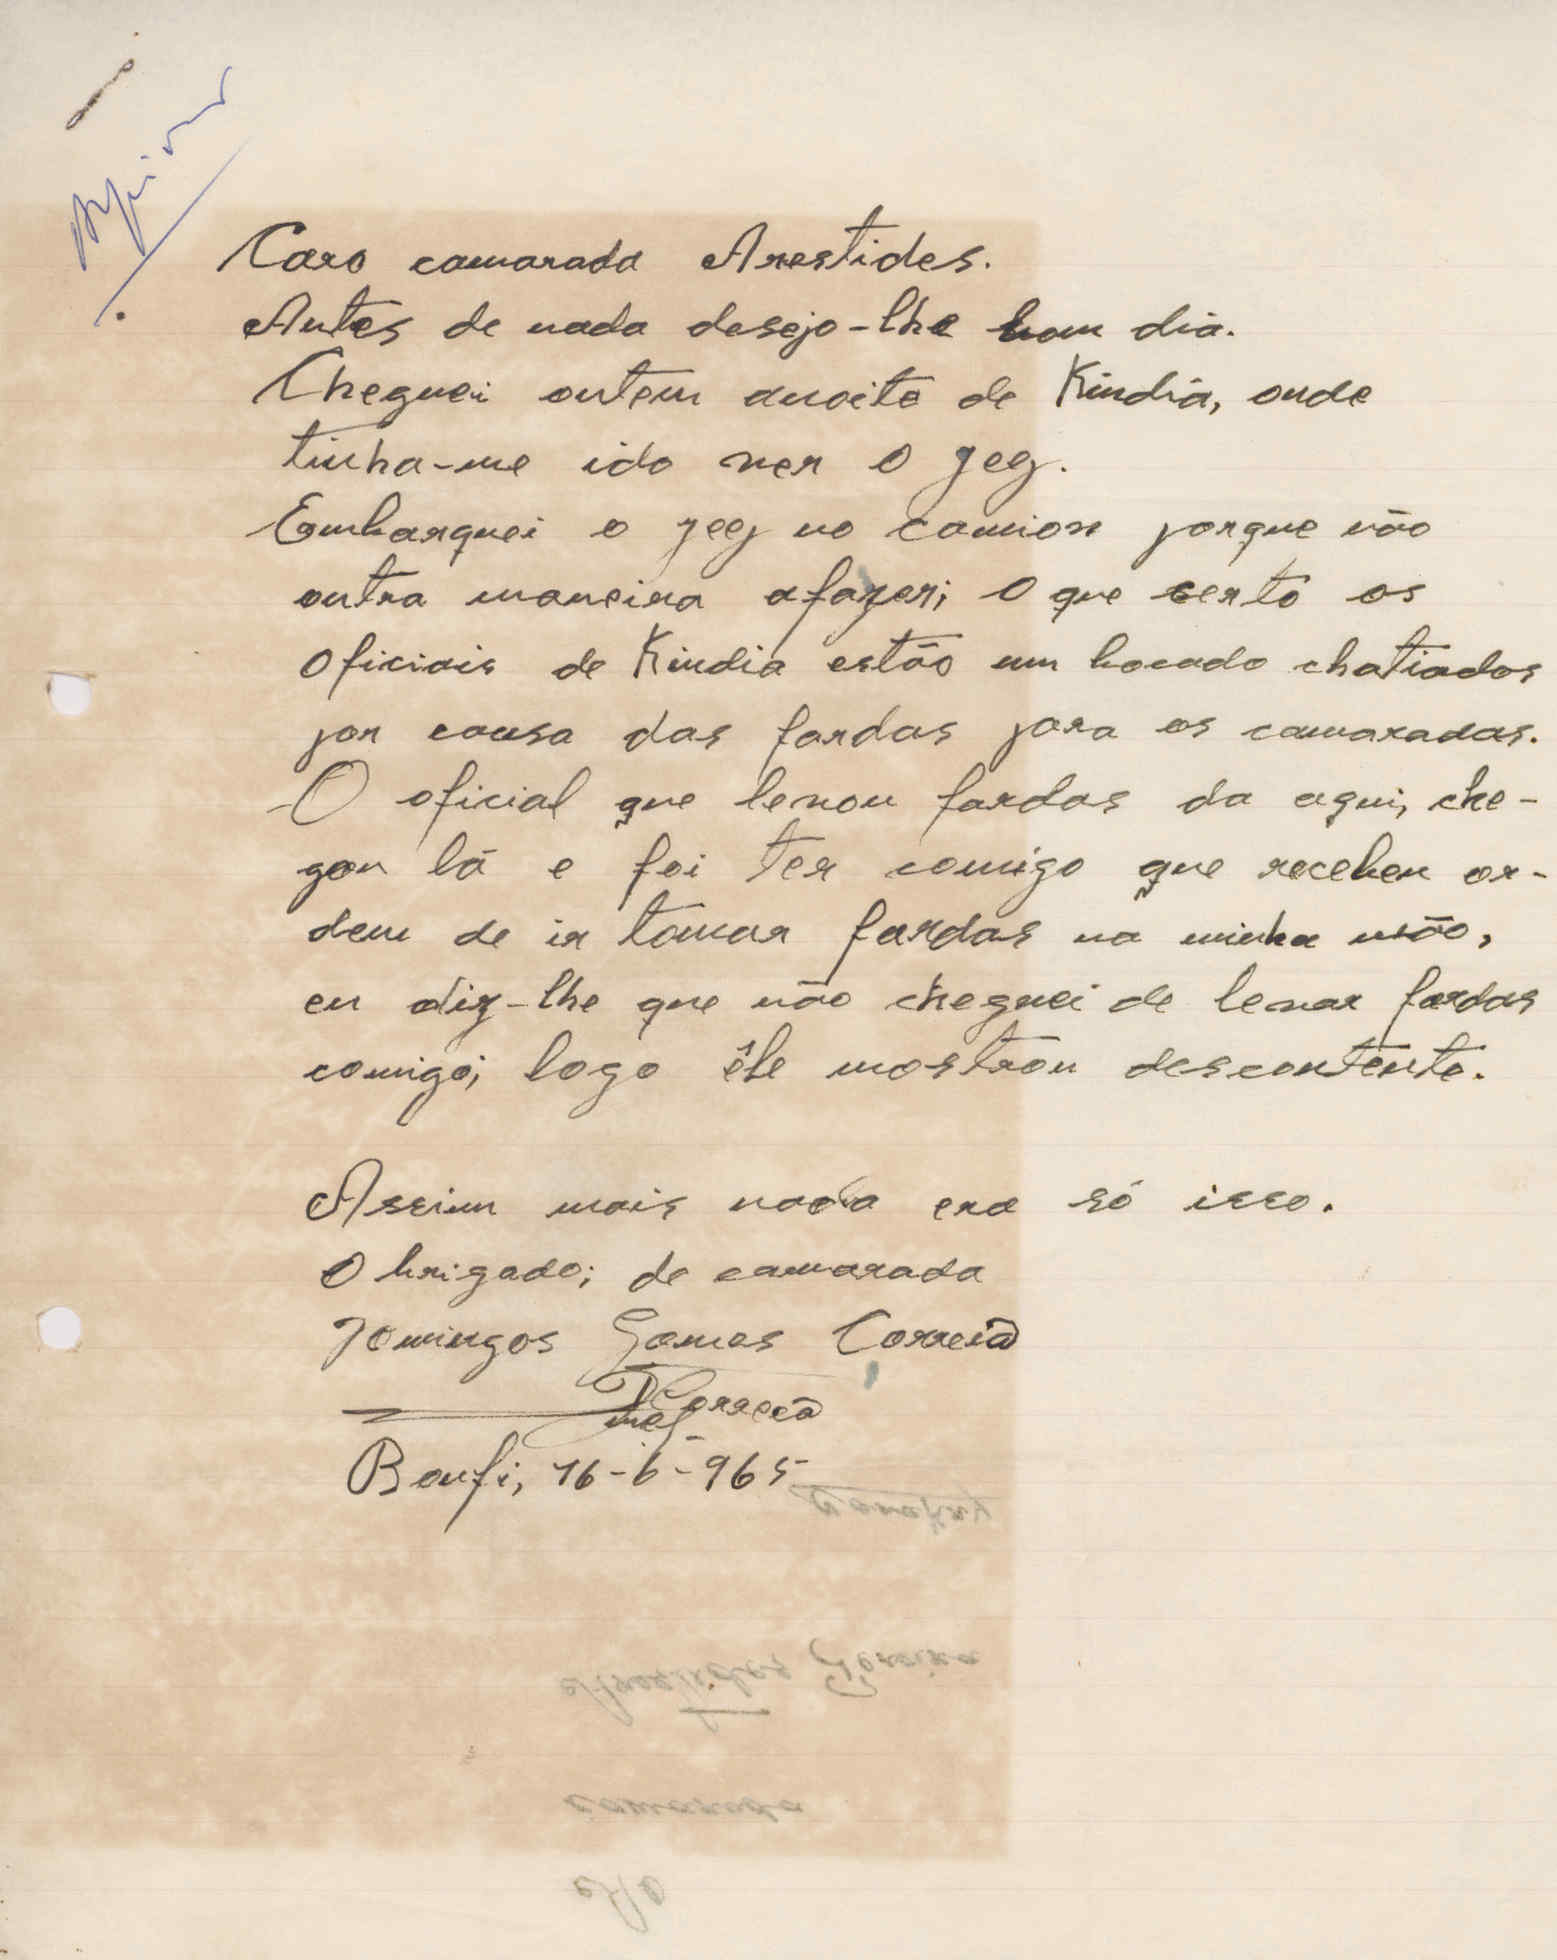 Caro camarada Arestides.
Antes de nada desejo-lhe bom dia.
Cheguei ontem anoite de Kindia, onde
tinha-me ido ver o jeep.
Embarquei o jeep no camion porque não
outra maneira afazer; O que certo os
oficiais de Kindia estão um bocado chatiados
por causa das fardas para os camaradas.
O oficial que levou fardas da aqui, che-
gou lá e foi ter comigo que recebeu or-
dem de ir tomar fardas na minha mão,
eu diz-lhe que não cheguei de levar fardas
comigo; logo êle mostrou descontente.
Assim mais nada era só isso.
Obrigado; de camarada
Domingos Gomes Correia
DCorreia
Bonfi, 16-6-965
Conakry
Arestides Pereira
Camarada
Ao